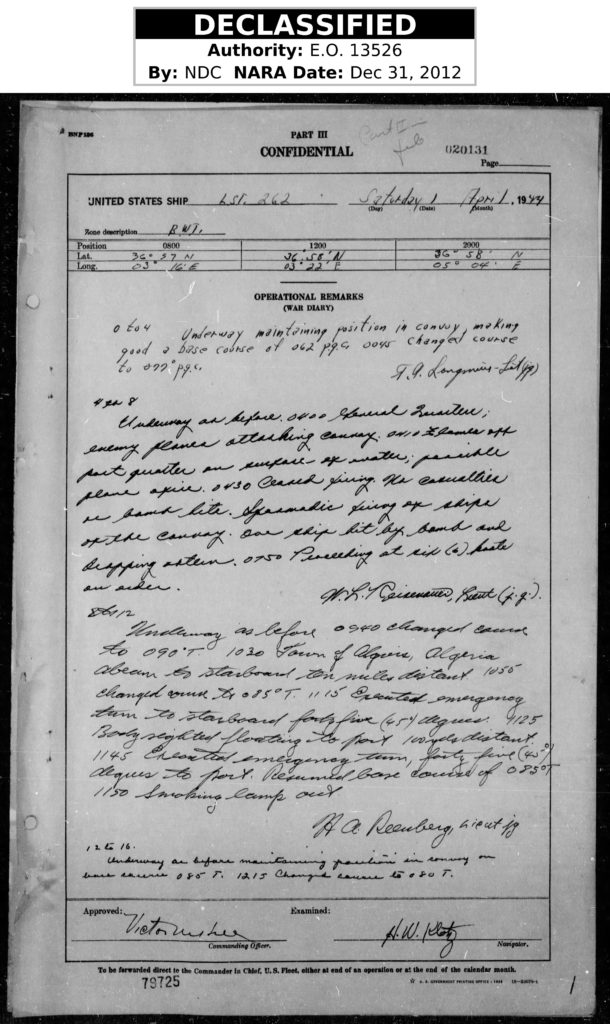 DECLASSIFIED
Authority: E.O. 13526
By: NDC NARA Date: Dec 31, 2012
BNP 196
PART III
CONFIDENTIAL
020131
Page
UNITED STATES SHIP LST. 262 Saturday 1 April, 1944
(Day) (Date) (Month)
Zone description
Position 0800 1200 2000
Lat. 36° 57 N 36° 58' N 36° 58' N
Long. 03° 16' E 03° 22' E 05° 04' E
OPERATIONAL REMARKS
(WAR DIARY)
0 to 4 Underway maintaining position in convoy, making
good a base course of 062 pgc. 0045 changed course
to 077° pgc.
4 to 8
Underway as before. 0400 General Quarters;
enemy planes attacking convoy. 0410 Flames off
port quarter on surface of water; possible
plane afire. 0430 Ceased firing. No casualties
or bomb hits. Spasmodic firing of ships
of the convoy. One ship hit by bomb and
dropping astern. 0750 Proceeding at six (6) knots
on order.
Lieut (j.g.).
8 to 12
Underway as before 0940 changed course
to 090°T. 1030 Town of Algiers, Algeria
abeam to starboard ten miles distant 1055
changed course to 085°T. 1115 Executed emergency
turn to starboard forty five (45°) degrees. 1125
Body sighted floating to port 100 yds distant
1145 Executed emergency turn, forty five (45°)
degrees to port. Resumed base course of 085°T
1150 Smoking lamp out.
H A. Lieut jg
12 to 16.
Underway as before maintaining position in convoy on
base course 085 T. 1215 Changed course to 080 T.
Approved: Examined:
H.W. Klotz
Commanding Officer. Navigator.
To be forwarded direct to the Commander in Chief, U.S. Fleet, either at end of an operation or at the end of the calendar month.
79725
U. S. GOVERNMENT PRINTING OFFICE
1